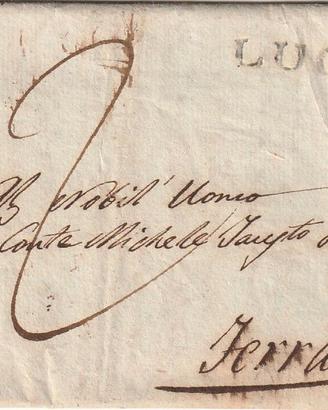 LUC
2
Nobil' Uomo
Conte Michele Fausto
Ferra